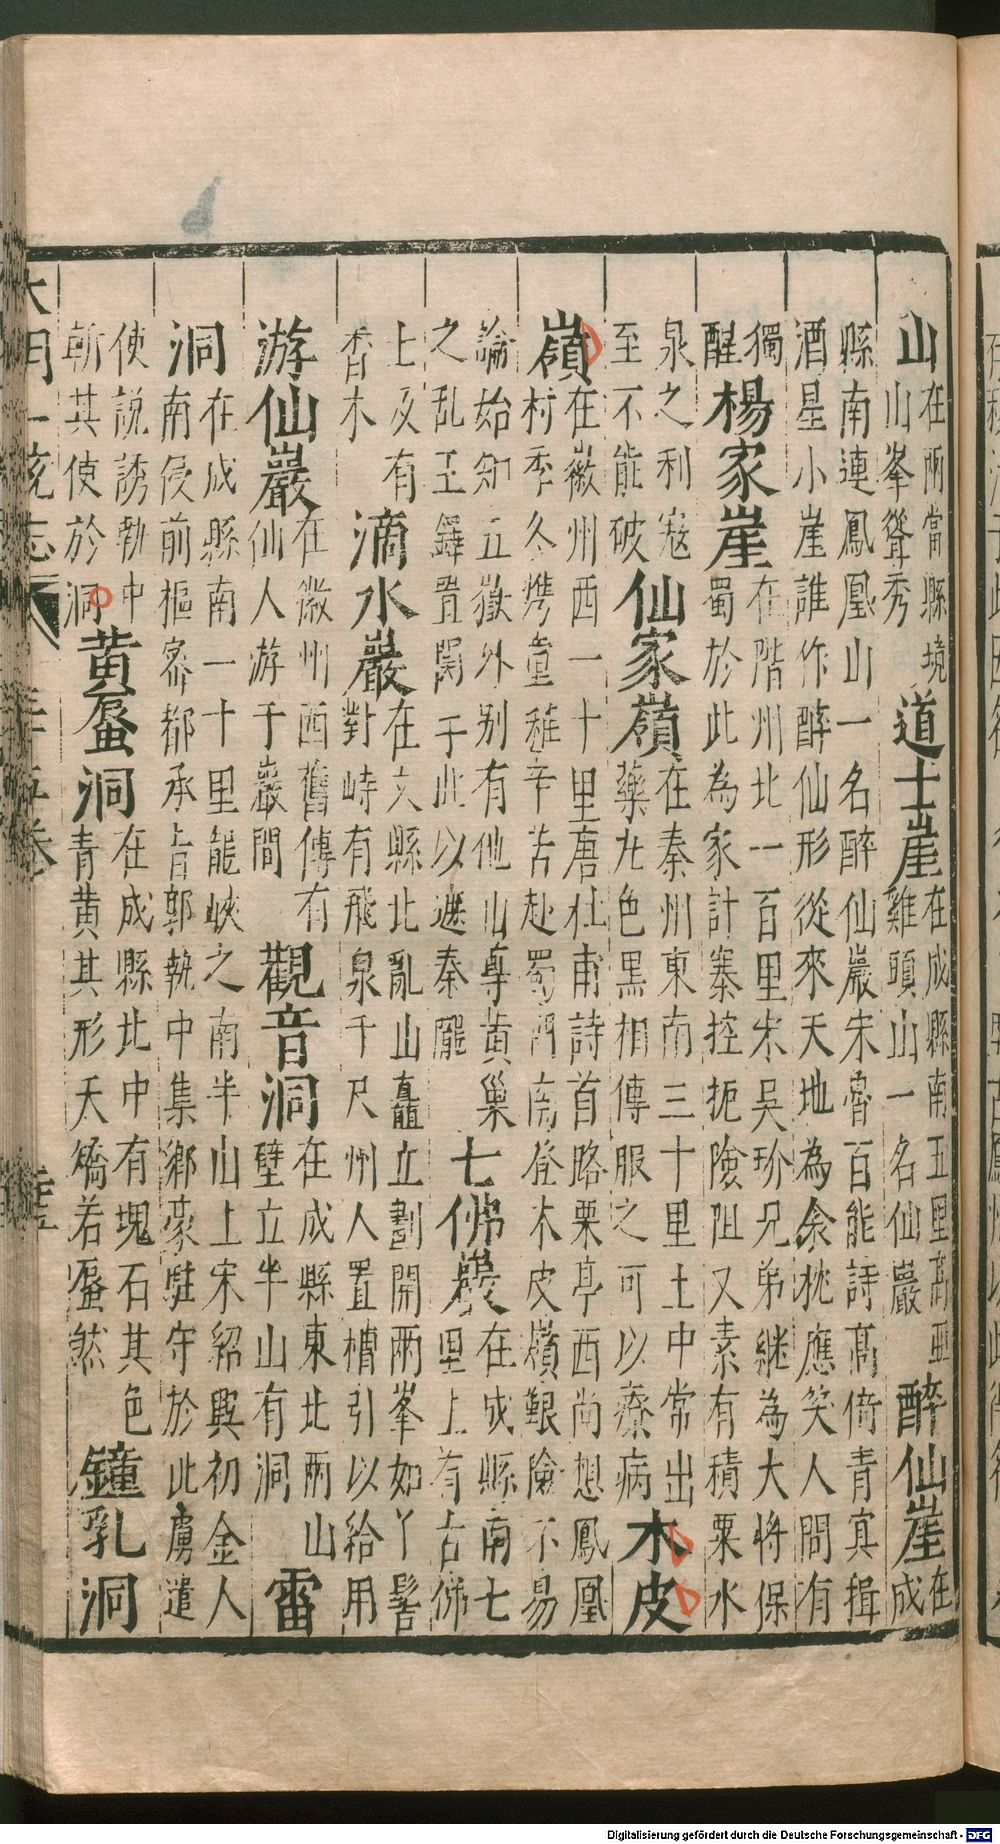 山在兩當縣境山峯聳秀道士崖在成縣南五里高亞雞頭山一名仙巖醉仙崖在成
縣南連鳳凰山一名醉仙巖宋魯百能詩高倚青冥揖酒星小崖誰作醉仙形從來天地為余枕應笑人間有
獨醒楊家崖在階州北一百里宋吳玠兄弟継為大將保蜀於此為家計寨控扼險阻又素有積粟水
泉之利寇至不能破仙家嶺在秦州東南三十里土中常出藥丸色黑相傳服之可以療病木皮
嶺在徽州西一十里唐杜甫詩首路栗亭西尚想鳳凰村季冬擕童稚辛苦赴蜀門南登木皮嶺艱險不易
論始知五嶽外别有他山尊黄巢之乱王鐸置関于此以遮秦隴七佛巖在成縣南七里上有古佛
上及有香木滴水巖在文縣北亂山矗立劃開兩峯如丫髻對峙有飛泉千尺州人置槽引以給用
游仙巖在徽州西舊傳有仙人游于巖間觀音洞在成縣東北兩山壁立半山有洞雷
洞在成縣南一十里龍峽之南半山上宋紹興初金人南侵前樞密都承旨郭執中集鄉豪駐守於此虜遣
使說誘執中斬其使於洞黄蜃洞在成縣北中有塊石其色青黄其形夭矯若蜃然鐘乳洞
大明一統志 三十五卷
Digitalisierung gefördert durch die Deutsche Forschungsgemeinschaft - DFG